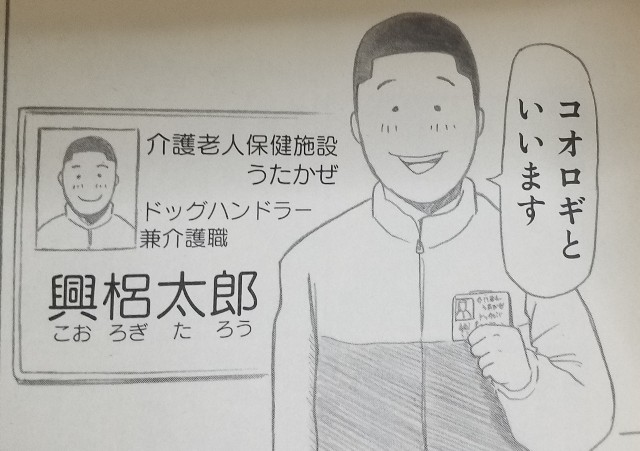 コオロギと
いいます
介護老人保健施設
うたかぜ
ドッグハンドラー
兼介護職
興梠太郎
こおろぎたろう